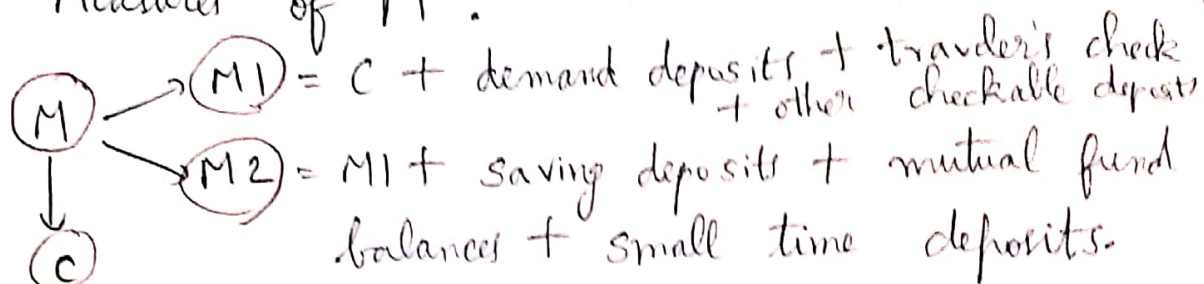 of M .
M M1 = C + demand deposits + traveler's check
+ other checkable deposits
M2 = M1 + saving deposits + mutual fund
C balances + small time deposits.